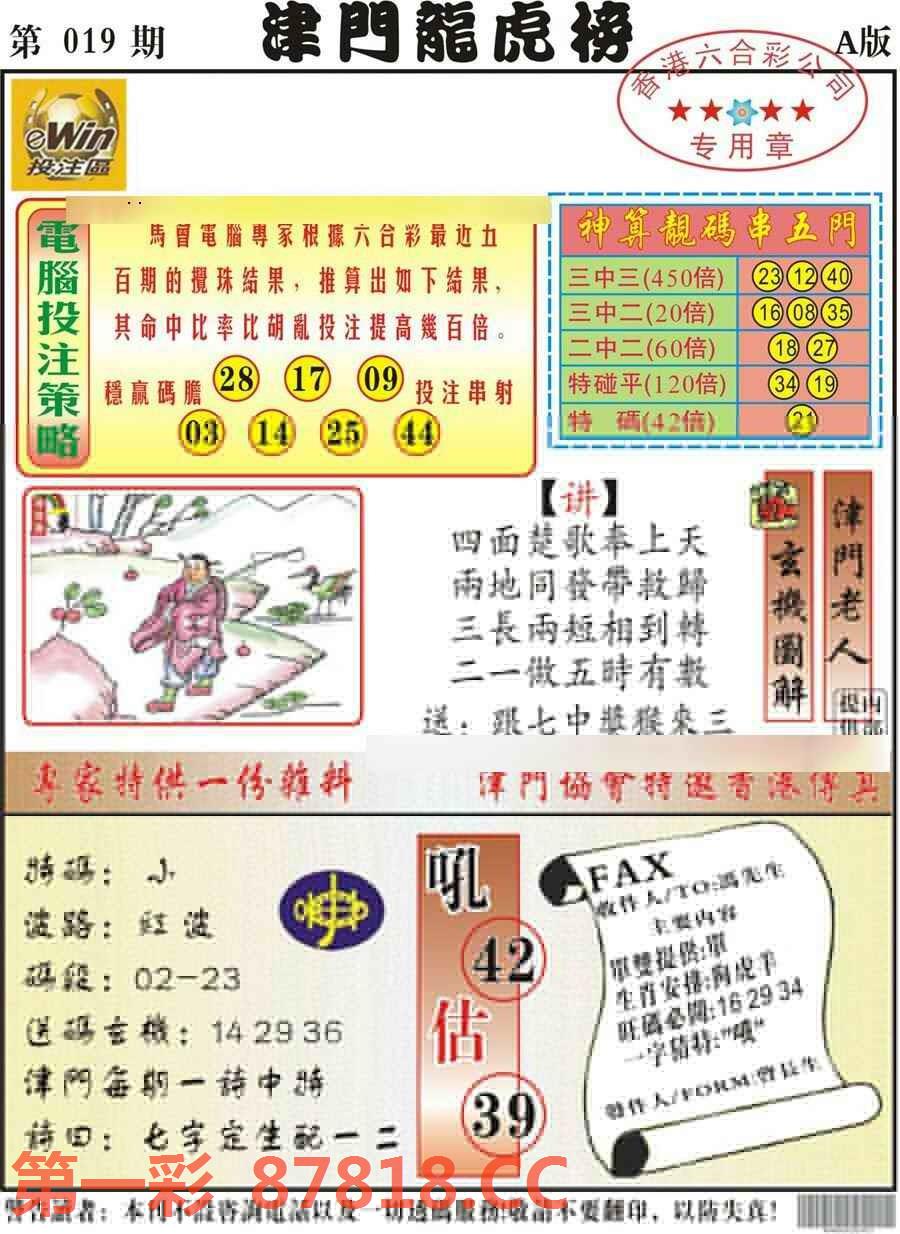 第 019 期
津門龍虎榜
A版
香港六合彩公司
专用章
eWin
投注區
電腦投注策略
馬會電腦專家根據六合彩最近五
百期的攪珠結果，推算出如下結果，
其命中比率比胡亂投注提高幾百倍。
穩贏碼膽 28 17 09 投注串射
03 14 25 44
神算靚碼串五門
三中三(450倍) 23 12 40
三中二(20倍) 16 08 35
二中二(60倍) 18 27
特碰平(120倍) 34 19
特 碼(42倍) 21
【讲】
四面楚歌奉上天
兩地同發帶救歸
三長兩短相到轉
二一做五時有數
送：跟七中獎猴來三
玄機圖解
津門老人
專家特供一份雜料
津門協會特邀香港傳真
特碼：小
波路：紅波
碼段：02-23
送碼玄機：14 29 36
津門每期一詩中特
詩曰：七字定生配一二
吼
42
估
39
FAX
收件人/TO:馮先生
主要内容
單雙提供:單
生肖安排:狗虎羊
旺碼必開:16 29 34
一字猜特:"哦"
發件人/FORM:曾長生
第一彩 87818.CC
以防失真！